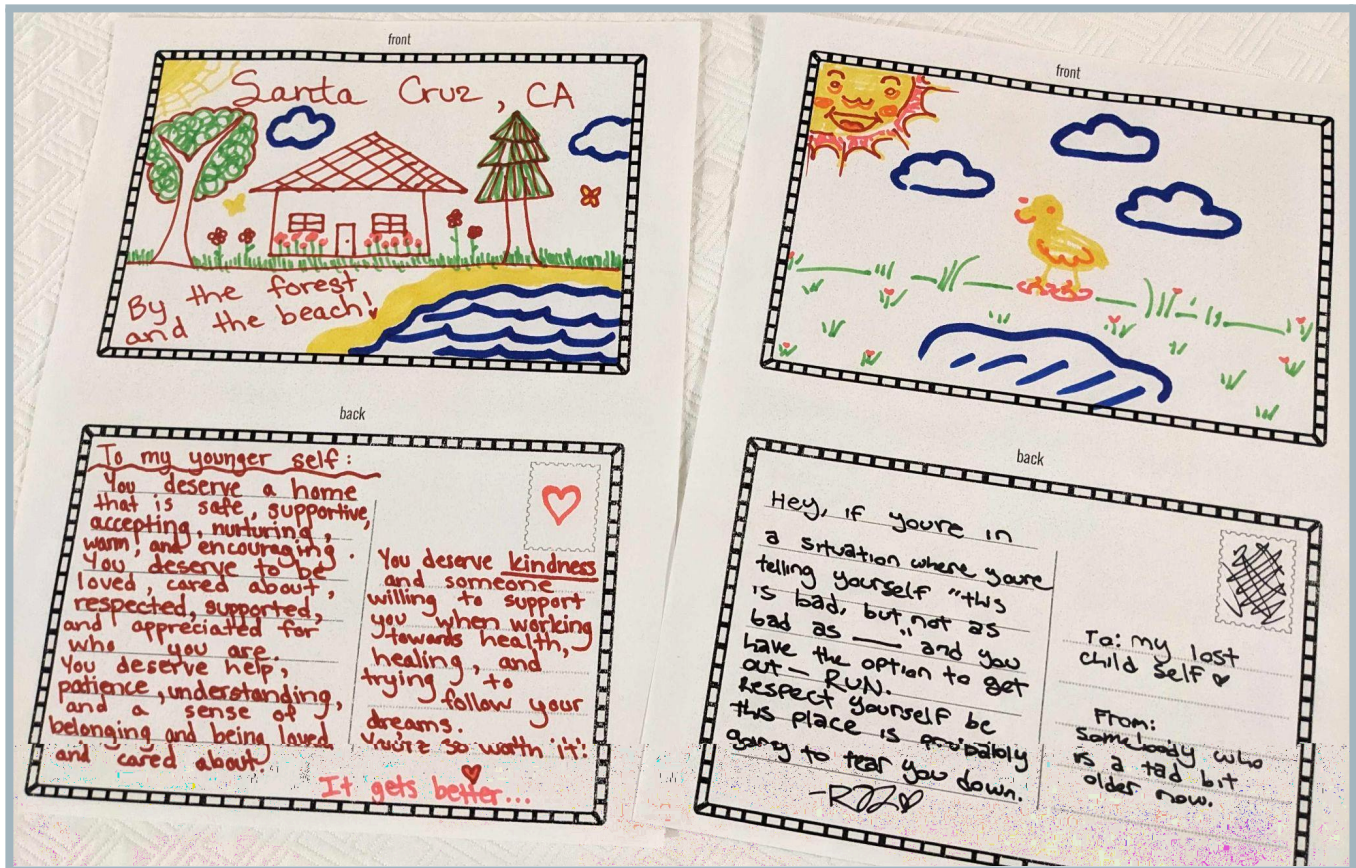 front
Santa Cruz, CA
By the forest
and the beach!
back
To my younger self:
You deserve a home
that is safe, supportive,
accepting, nurturing,
warm, and encouraging.
You deserve to be
loved, cared about,
respected, supported,
and appreciated for
who you are.
You deserve help,
patience, understanding,
and a sense of
belonging and being loved
and cared about
You deserve kindness
and someone
willing to support
you when working
towards health,
healing, and
trying to
follow your
dreams.
You're so worth it!
It gets better...
front
back
Hey, if youre in
a situation where youre
telling yourself "this
is bad, but not as
bad as ___" and you
have the option to get
out — RUN.
Respect yourself bc
this place is probably
going to tear you down.
To: my lost
child self
From:
Somebody who
is a tad bit
older now.